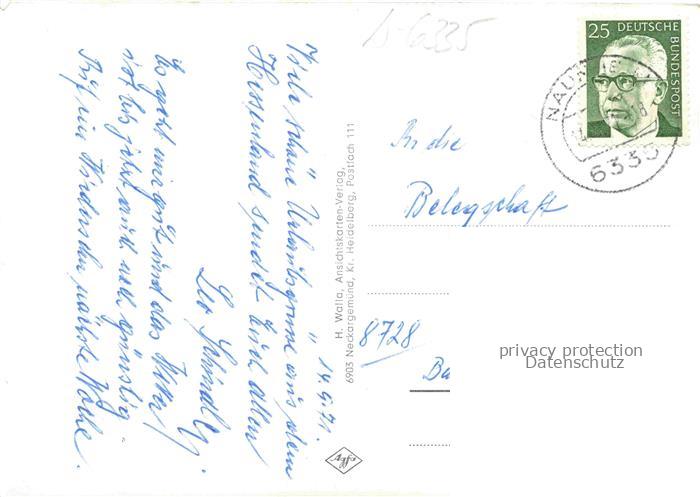 D-6335
25 DEUTSCHE BUNDESPOST
NAUNHEIM
6335
14.9.71.
Viele schöne Urlaubsgrüße aus dem
Hessenland sendet Euch allen
Leo Schindler.
Es geht mir gut und das Wetter
ist bis jetzt auch noch günstig.
Auf ein Wiedersehn nächste Woche.
H. Walla, Ansichtskarten-Verlag,
6905 Neckargemünd, Kr. Heidelberg, Postfach 111
Agfa
An die
Belegschaft
8728
privacy protection
Datenschutz